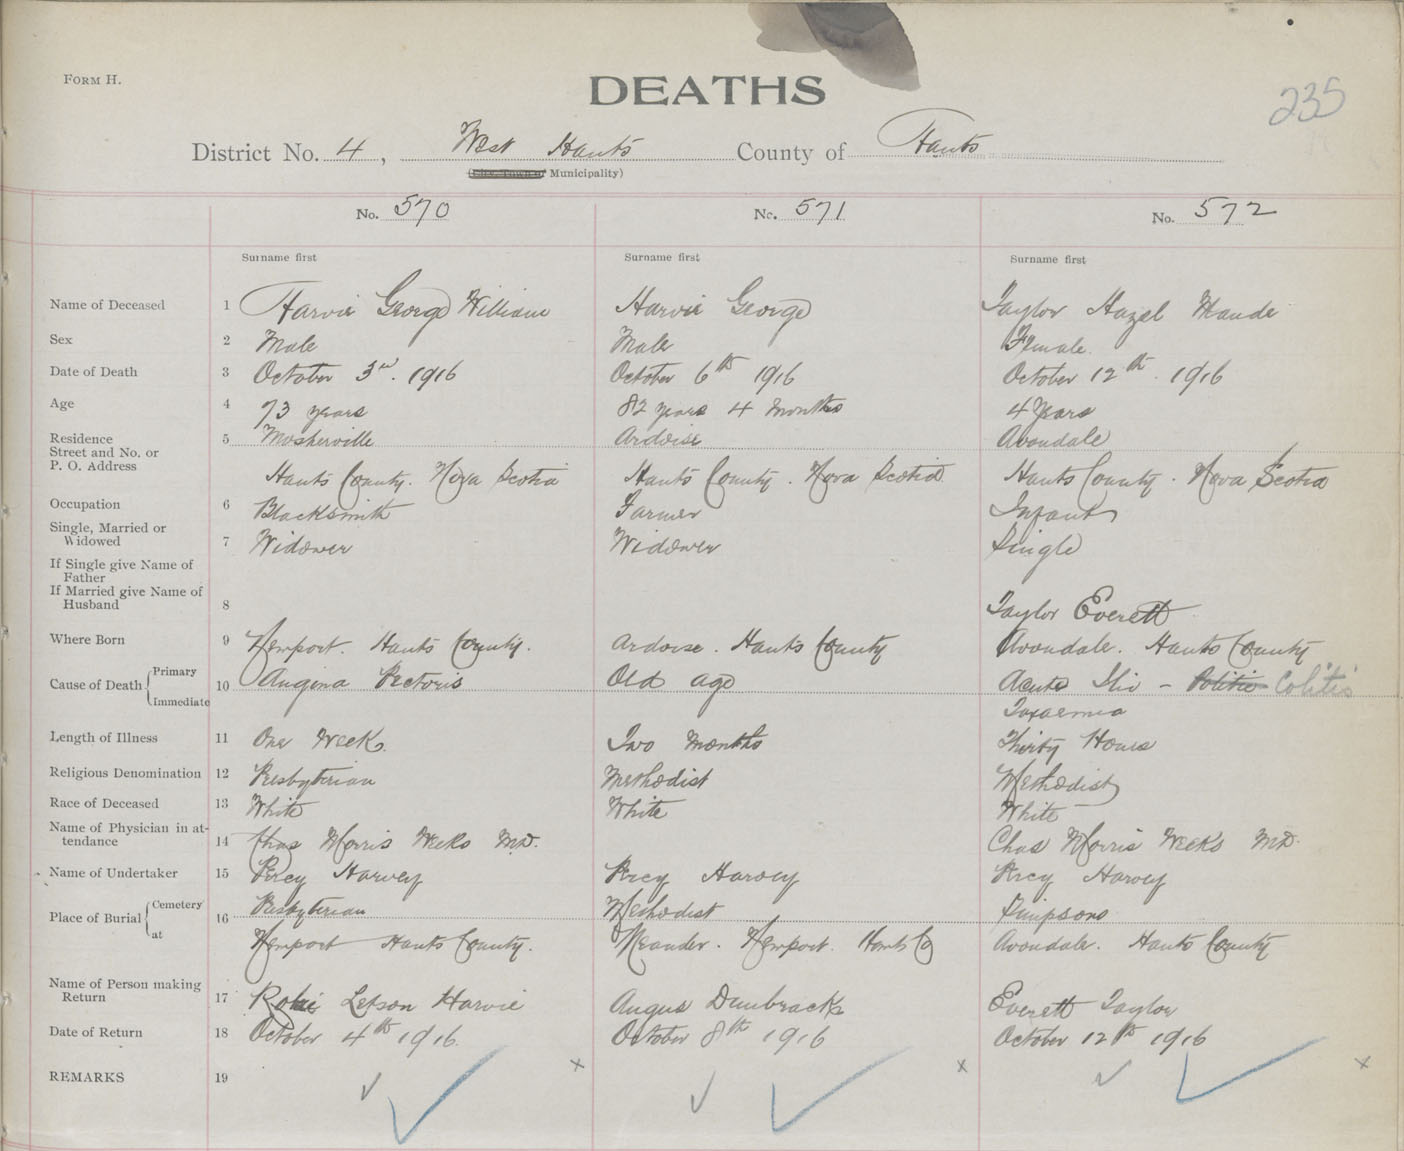 FORM H.
DEATHS
235
District No. 4, West Hants County of Hants
(City, Town or Municipality)
No. 570 No. 571 No. 572
Surname first Surname first Surname first
Name of Deceased 1 Harvie George William Harvie George Taylor Hazel Maude
Sex 2 Male Male Female
Date of Death 3 October 3rd. 1916 October 6th 1916 October 12th. 1916
Age 4 73 years 82 years 4 months 4 Years
Residence 5 Mosherville Ardoise Avondale
Street and No. or
P. O. Address
Hants County. Nova Scotia Hants County. Nova Scotia Hants County. Nova Scotia
Occupation 6 Blacksmith Farmer Infant
Single, Married or
Widowed 7 Widower Widower Single
If Single give Name of
Father
If Married give Name of
Husband 8 Taylor Everett
Where Born 9 Newport. Hants County. Ardoise. Hants County Avondale. Hants County
Cause of Death { Primary
10 Angina Pectoris Old age Acute Ilio - Colitis
Immediate Toxaemia
Length of Illness 11 One Week Two Months Thirty Hours
Religious Denomination 12 Presbyterian Methodist Methodist
Race of Deceased 13 White White White
Name of Physician in at-
tendance 14 Chas Morris Weeks M.D. Chas Morris Weeks M.D.
Name of Undertaker 15 Percy Harvey Percy Harvey Percy Harvey
Place of Burial { Cemetery 16 Presbyterian Methodist Simpsons
at Newport Hants County. Meander. Newport. Hants Co Avondale. Hants County
Name of Person making
Return 17 Harvie Angus Dunbrack Everett Taylor
Date of Return 18 October 4th 1916. October 8th 1916 October 12th 1916
REMARKS 19 x x x